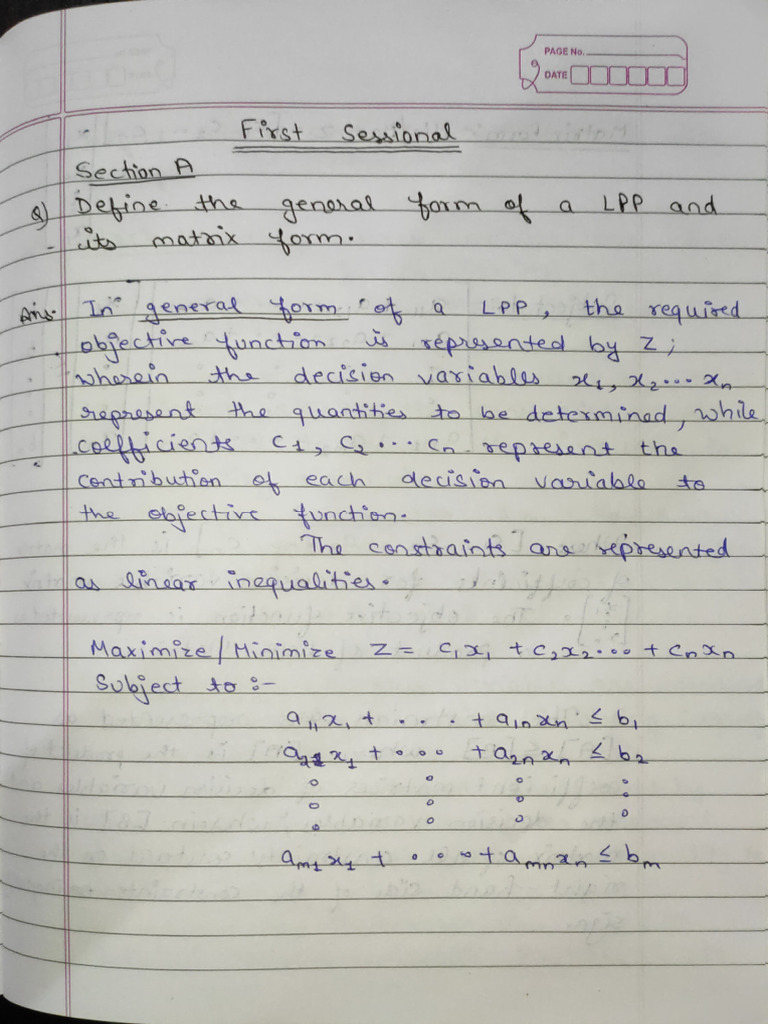 PAGE No.
DATE
First Sessional
Section A
Q) Define the general form of a LPP and
its matrix form.
Ans. In general form of a LPP, the required
objective function is represented by Z;
wherein the decision variables x1, x2... xn
represent the quantities to be determined, while
coefficients C1, C2 ... Cn represent the
contribution of each decision variable to
the objective function.
The constraints are represented
as linear inequalities.
Maximize/Minimize Z = c1x1 + c2x2... + cnxn
Subject to :-
a11x1 + . . . . + a1nxn ≤ b1
a21x1 + ... + a2nxn ≤ b2
am1x1 + ... + amnxn ≤ bm